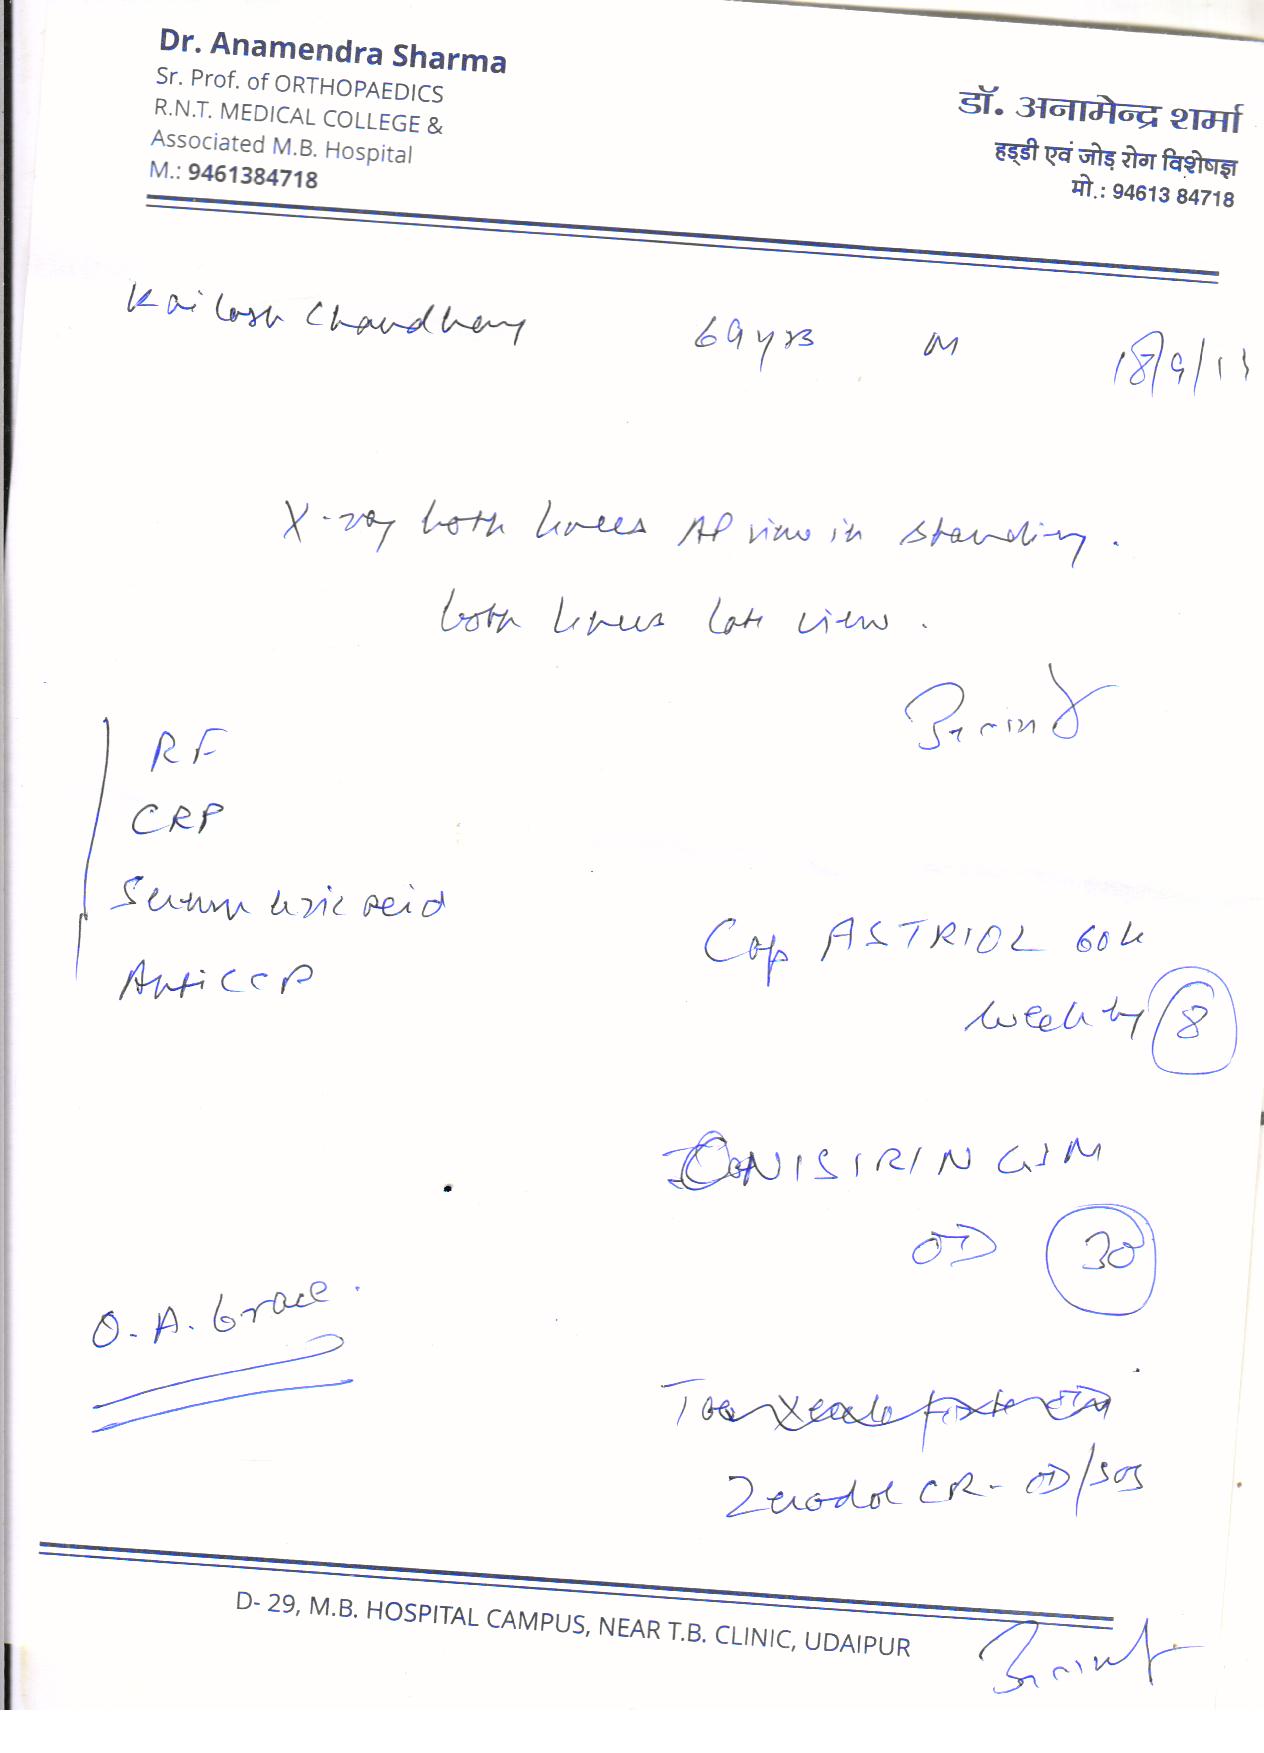 Dr. Anamendra Sharma
Sr. Prof. of ORTHOPAEDICS
R.N.T. MEDICAL COLLEGE &
Associated M.B. Hospital
M.: 9461384718
डॉ. अनामेन्द्र शर्मा
हड्डी एवं जोड़ रोग विशेषज्ञ
मो.: 94613 84718
Kailash Chaudhary 69 yrs M
X-ray both knees AP view in standing.
both knees lat view.
RF
CRP
Serum uric acid
Anti CCP
Cap ASTRIOL 60k
weekly 8
GSM
OD 30
O.A. brace.
Zerodol CR - OD/SOS
D- 29, M.B. HOSPITAL CAMPUS, NEAR T.B. CLINIC, UDAIPUR